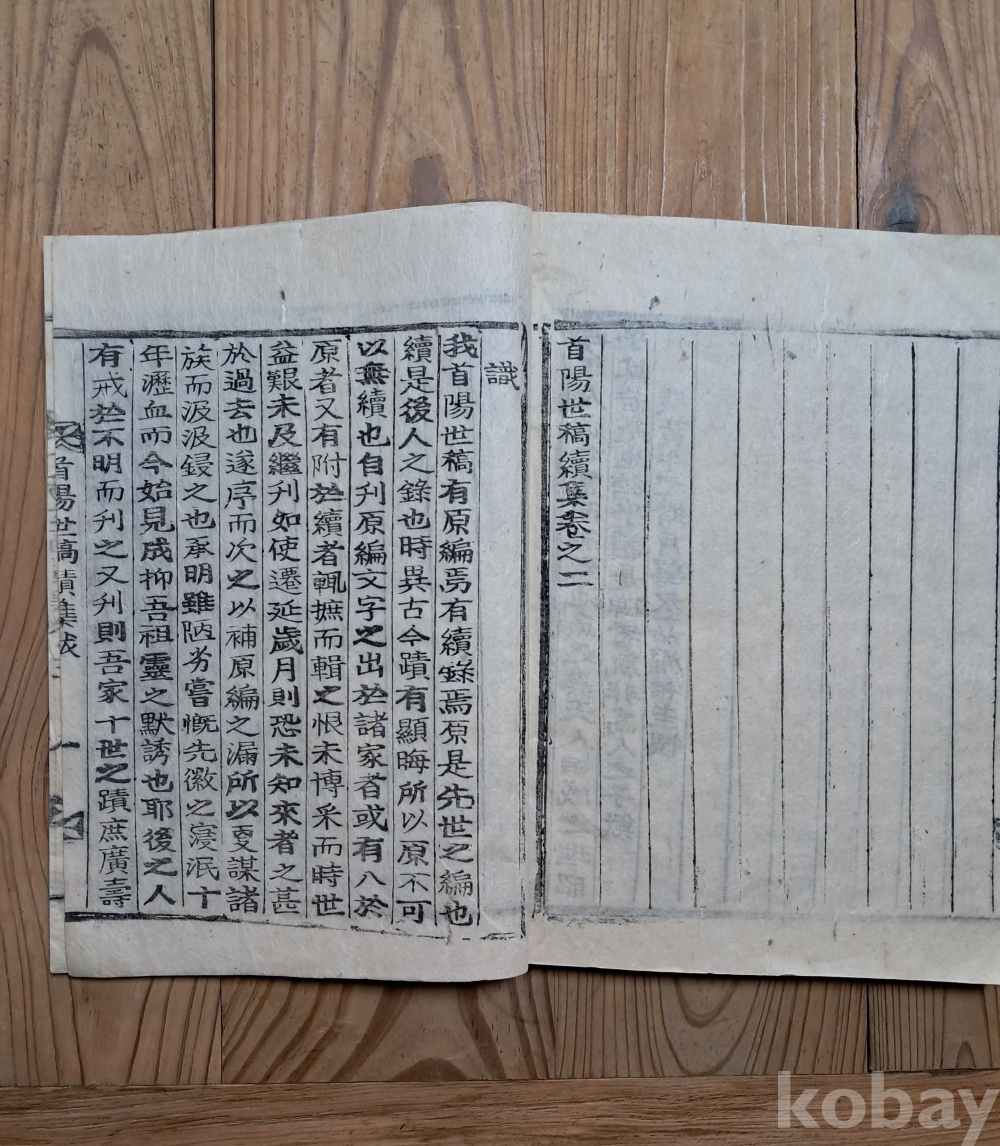 首陽世稿續集卷之二
識
我首陽世稿有原編焉有續錄焉原是先世之編也
續是後人之錄也時異古今蹟有顯晦所以原不可
以無續也自刋原編文字之出於諸家者或有入於
原者又有附於續者輒摭而輯之恨未博采而時世
益艱未及繼刋如使遷延歲月則恐未知來者之甚
於過去也遂序而次之以補原編之漏所以更謀諸
族而汲汲鋟之也承明雖陋劣嘗慨先徽之寖泯十
年瀝血而今始見成抑吾祖靈之默誘也耶後之人
有戒於不明而刋之又刋則吾家十世之蹟庶廣壽
首陽世稿續集
kobay